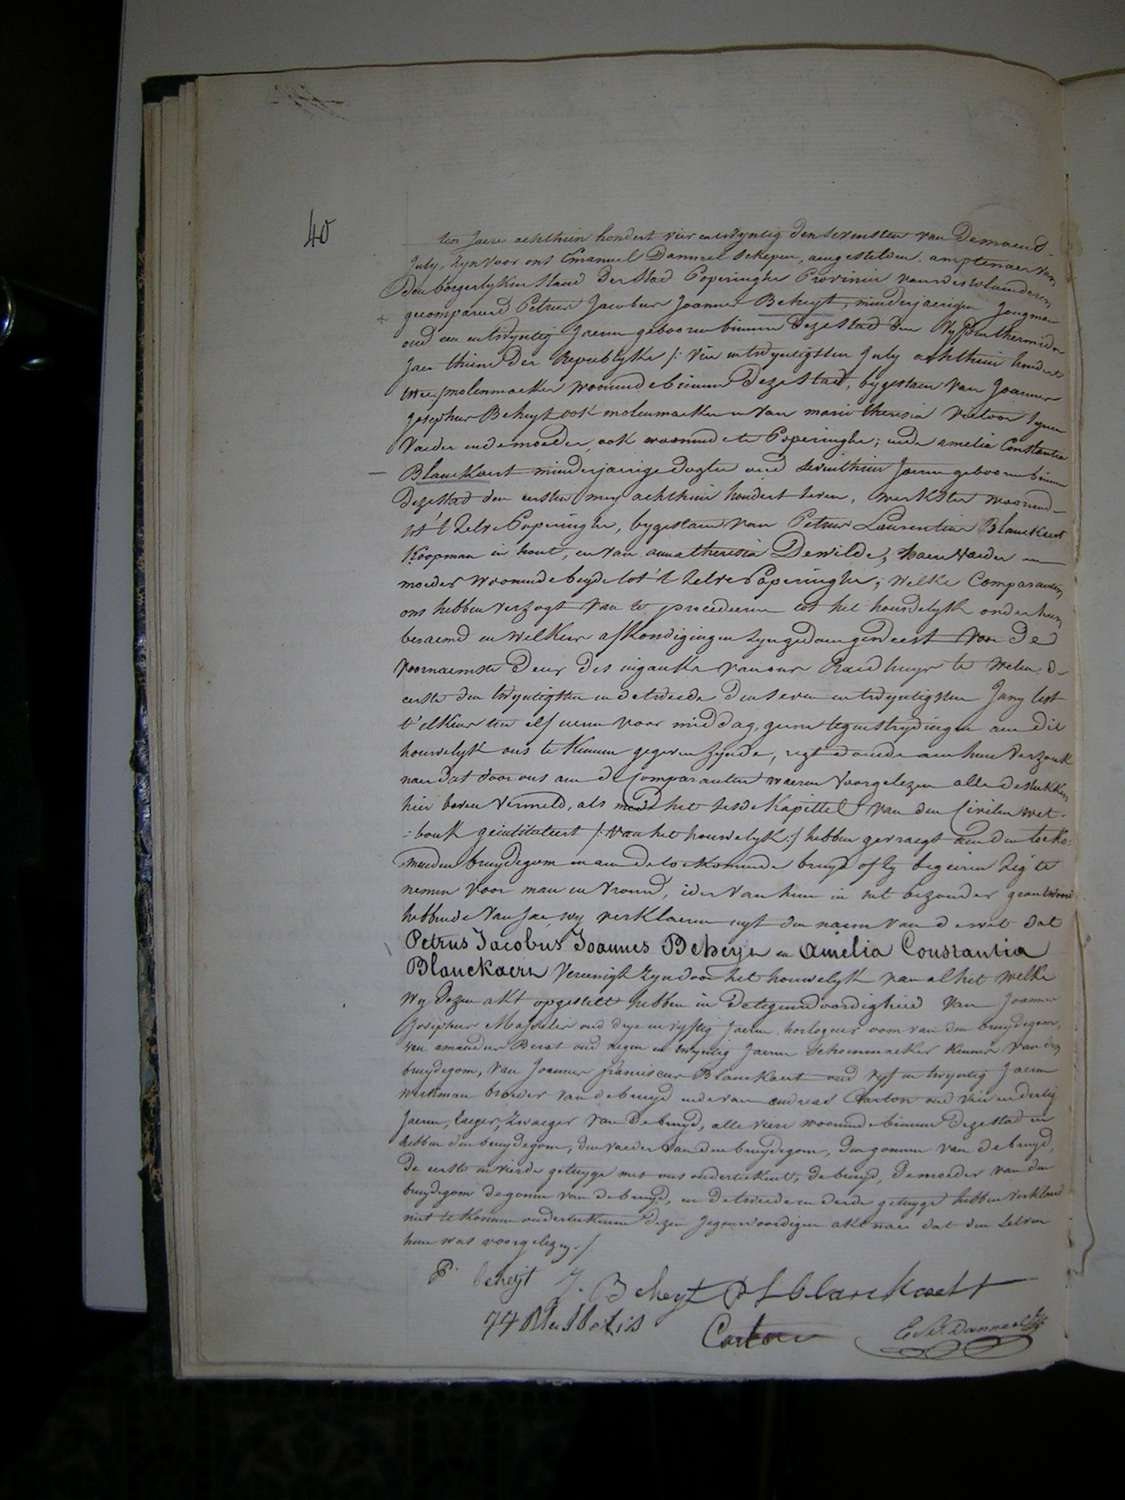 40
ten Jaere achthien hondert vier en twyntig den sevensten van de maend
July, zyn voor ons Emanuel Danneel schepen, aengestelden amptenaer van
den borgerlyken stand der stad Poperinghe Provincie van westvlanderen
gecompareerd Petrus Jacobus Joannes Beheyt, minderjaerigen Jongman
oud een en twyntig Jaeren geboren binnen deze stad den vyfden thermidor
Jaer thiene der Republyke /: vier en twyntigsten July achthien hondert
twee/ molenmaeker woonende binnen deze stad, bygestaen van Joannes
Josephus Beheyt ook molenmaeker en van marie theresia synen
Vaeder ende moeder, ook woonende te Poperinghe; ende amelia Constantia
Blanckaert minderjaerige dogter oud seventhien Jaeren geboren binnen
deze stad den eersten mey achthien hondert seven, werkster woonend
tot 't zelve Poperinghe, bygestaen van Petrus Laurentius Blanckaert
Koopman in hout, en van anna theresia Dewilde, haere Vaeder en
moeder woonende beyde tot 't zelve Poperinghe; welke Comparanten
ons hebben verzogt van te procederen tot het houwdelyk onder hun
beraemd en welkers afkondigingen zyn gedaen geweest voor de
voornaemste deur des ingankx van ons Raedhuys te weten: d-
eerste den twyntigsten en de tweede den seven en twyntigsten Juny lest
t'elkens ten elf ueren voor middag, geene tegenstrydingen aen dit
houwelyk ons te kennen gegeven synde, regt doende aen hun verzoek
naer dat door ons aen de Comparanten waeren voorgelezen alle de stukken
hier boven vermeld, als mede het sesde kapittel van den Civilen wet-
:bouk geintituleert /: van het houwelyk :/ hebben gevraegt aen den toeko-
menden bruydegom en aen de toekomende bruyd of zy begeiren zig te
nemen voor man en vrouw, ider van hun in het bezonder geantwoord
hebbende van Jae wy verklaeren uyt den naem van de wet dat
Petrus Jacobus Joannes Beheyt en Amelia Constantia
Blanckaert Vereenigt zyn door het houwelyk van al het welke
wy dezen akt opgestelt hebben in de tegenwoordigheid van Joannes
Josephus oud drye en vyftig Jaeren, horlogeur oom van den bruydegom,
van amandus oud negen en twyntig Jaeren schoenmaeker kennis van den
bruydegom, van Joannes franciscus Blanckaert oud vyf en twyntig Jaeren
werkman broeder van de bruyd ende van andreas Carton oud vier en dertig
Jaeren, Zaeger, Zwaeger van de bruyd, alle viere woonende binnen deze stad en
hebben den bruydegom, den vaeder van den bruydegom, den gonnen van de bruyd,
de eerste en vierde getuygge met ons onderteekent, de bruyd, de moeder van den
bruydegom de gonne van de bruyd, en de tweede en derde getuygge hebben verklaerd
niet te konnen onderteekenen dezen jegenwoordigen akt naer dat den selven
hun was voorgelezen./
P. beheyt J. Beheyt P L blanckaert
Carton E. D. Danneel